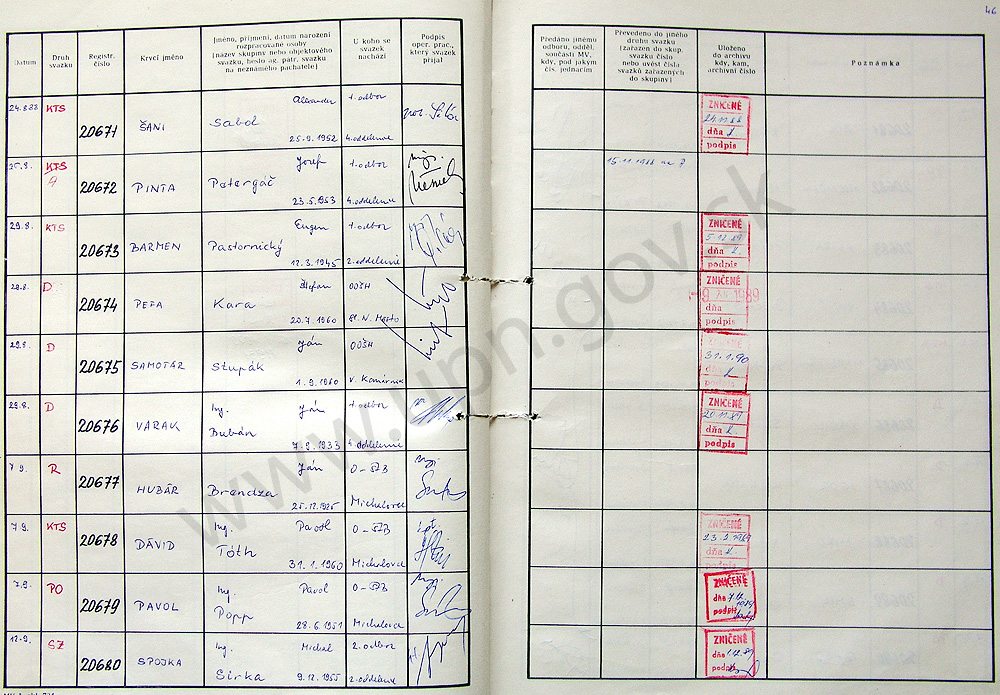 46
Datum
Druh svazku
Registr. číslo
Krycí jméno
Jméno, příjmení, datum narození rozpracované osoby (název skupiny nebo objektového svazku, heslo ag. pátr. svazku na neznámého pachatele)
U koho se svazek nachází
Podpis oper. prac., který svazek přijal
Předáno jinému odboru, odděl. součásti MV, kdy, pod jakým čís. jednacím
Převedeno do jiného druhu svazku (zařazen do skup. svazku číslo nebo uvést čísla svazků zařazených do skupiny)
Uloženo do archivu kdy, kam, archivní číslo
Poznámka
24.8.88 KTS 20671 ŠANI Alexander Sabol 25.9.1952 1. odbor 4. oddelenie ZNIČENÉ dňa podpis
25.8. KTS A 20672 PINTA Jozef Petergáč 23.5.1953 1. odbor 4. oddelenie 15.11.1988
29.8. KTS 20673 BARMEN Eugen Pastornický 12.3.1945 1. odbor 2. oddelenie ZNIČENÉ 5.12.89 dňa podpis
29.8. D 20674 PEFA Štefan Kara 20.7.1960 OOŠH ZNIČENÉ 1989 dňa podpis
29.8. D 20675 SAMOTÁR Ján Stupák 1.9.1960 OOŠH V. Kamenec ZNIČENÉ 31.1.90 dňa podpis
29.8. D 20676 VARAK Ing. Ján Bubán 7.9.1933 1. odbor 4. oddelenie ZNIČENÉ 20.11.89 dňa podpis
7.9. R 20677 HUBÁR Ján Brendza 25.12.1925 O-ŠZB Michalovce
7.9. KTS 20678 DÁVID Ing. Pavol Tóth 31.1.1960 O-ŠZB Michalovce ZNIČENÉ 23.2.1989 dňa podpis
7.9. PO 20679 PAVOL Ing. Pavol Popp 28.6.1951 O-ŠZB Michalovce ZNIČENÉ dňa podpis
12.9. SZ 20680 SPOJKA Ing. Michal Sirka 9.12.1955 2. odbor 2. oddelenie ZNIČENÉ dňa podpis
www.upn.gov.sk